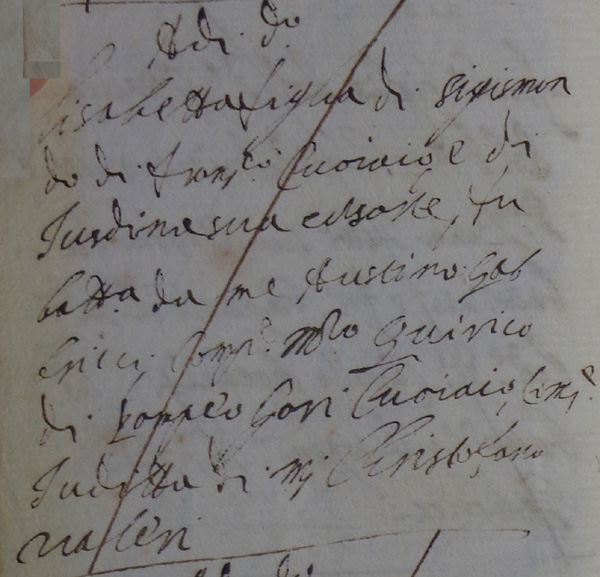 Adi do
lisabetta figlia di Sigismon
do di franco Cuoiaio e di
Iusdina sua consorte, fu
batta da me Austino Gab
brieli Compe mro Quirico
di Pompeo Gori Cuoiaio, Come
Iuditta di mr Christofano
Valeri